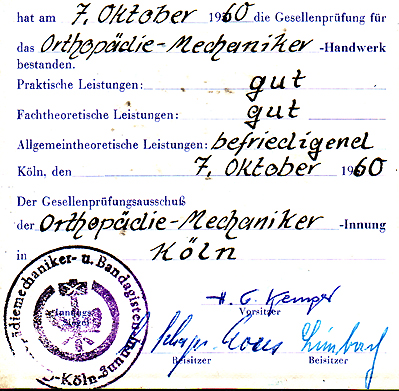 hat am 7. Oktober 1960 die Gesellenprüfung für
das Orthopädie-Mechaniker -Handwerk
bestanden.
Praktische Leistungen: gut
Fachtheoretische Leistungen: gut
Allgemeintheoretische Leistungen: befriedigend
Köln, den 7. Oktober 1960
Der Gesellenprüfungsausschuß
der Orthopädie-Mechaniker -Innung
in Köln
Vorsitzer
Beisitzer Beisitzer
mechaniker- u. Bandagisten-Innung
Köln